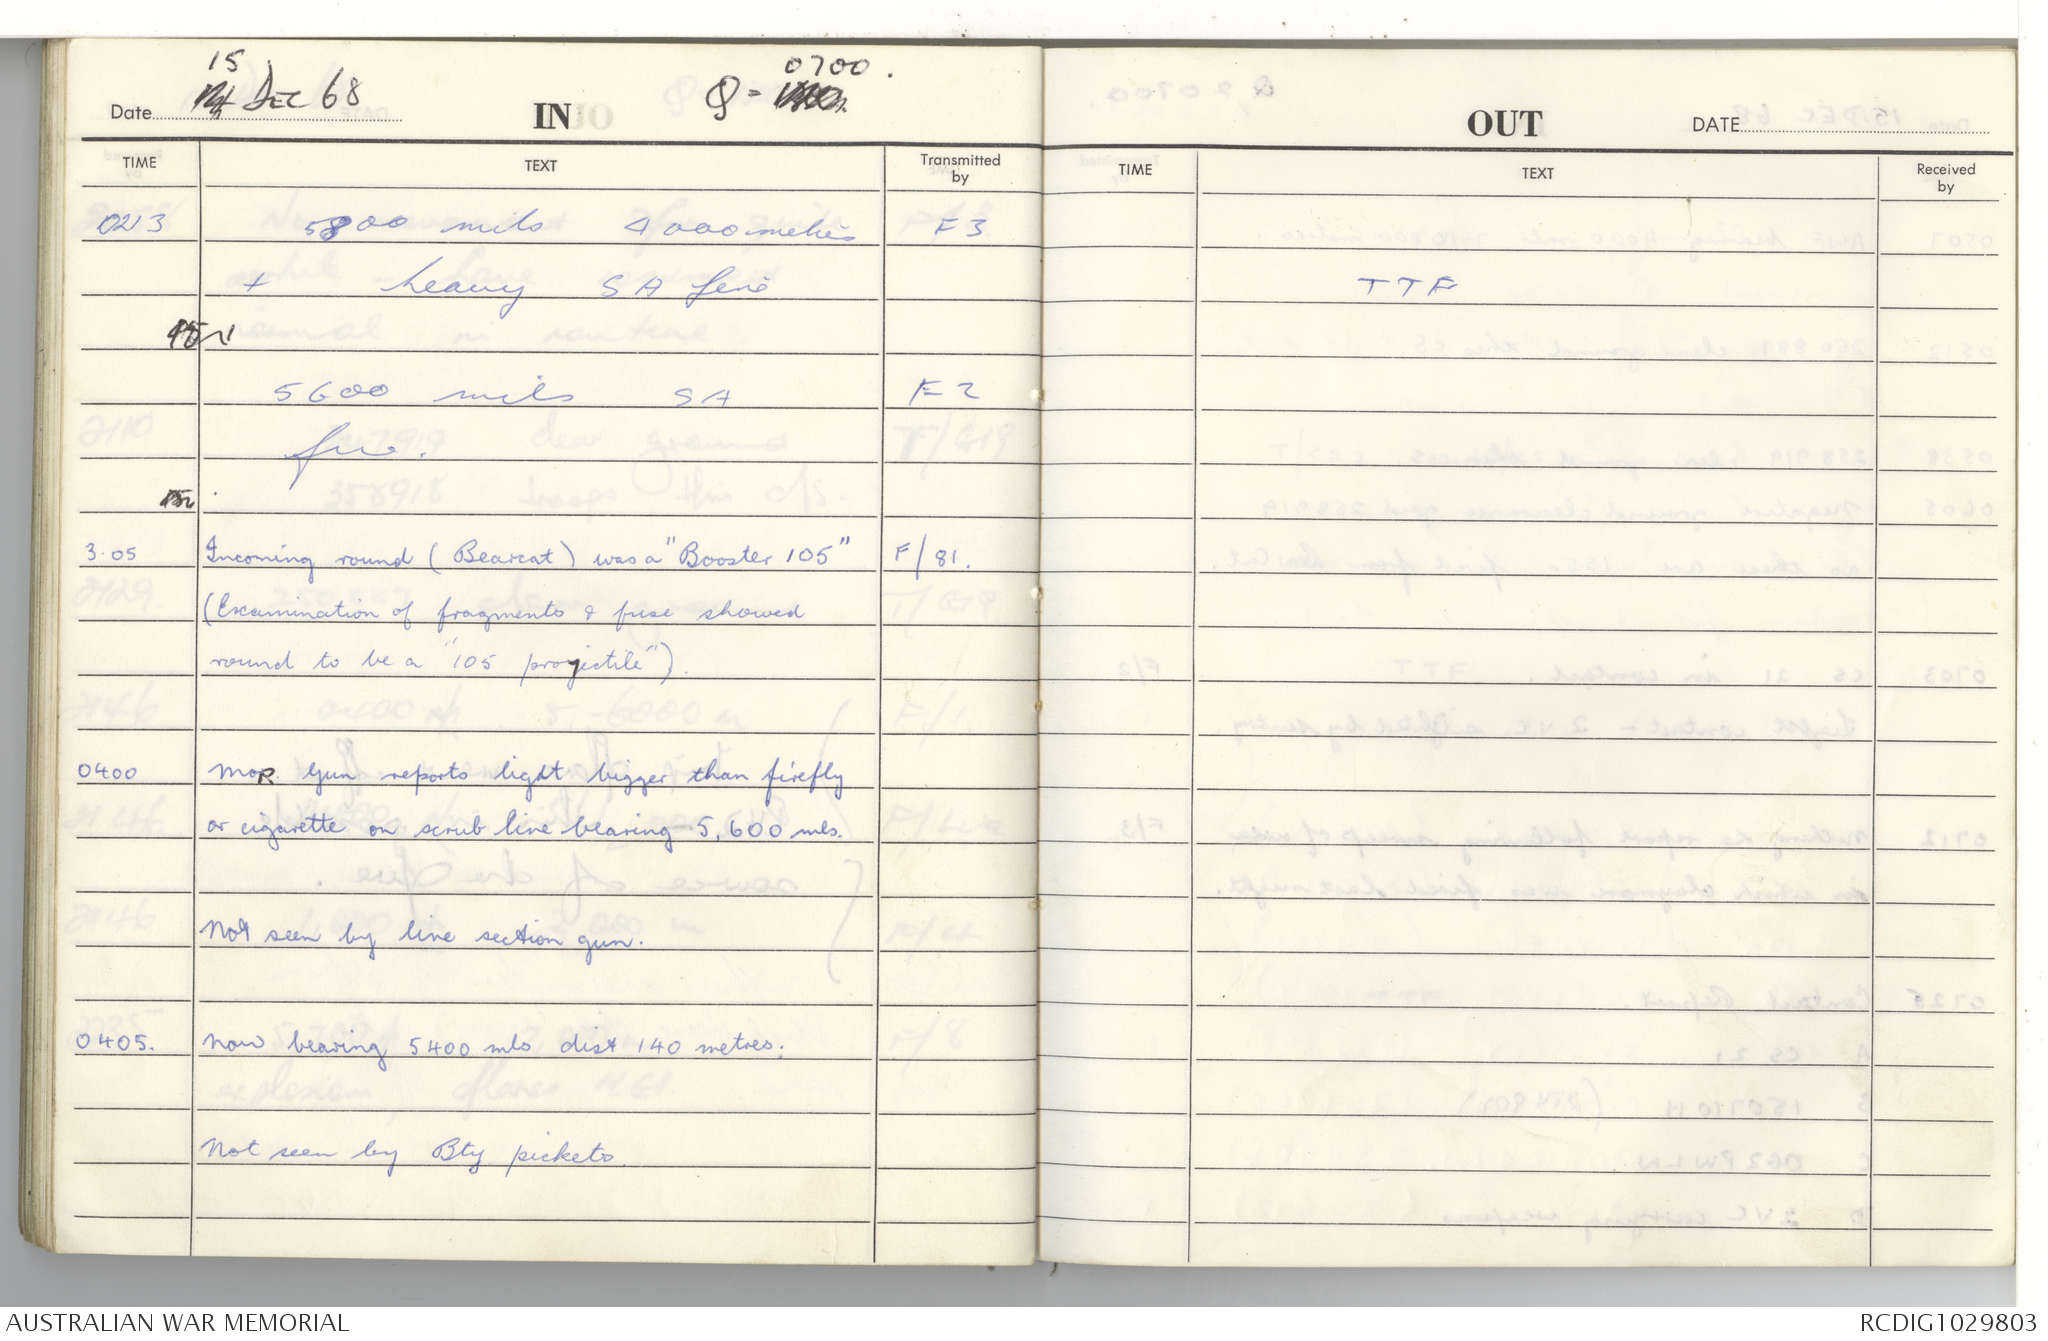 15
Date DEC 68
IN
Q = 0700.
TIME TEXT Transmitted by
0213 5800 mils 4000 metres F3
+ heavy SA fire
5600 mils SA F2
fire.
3.05 Incoming round (Bearcat) was a "Booster 105" F/81.
(Examination of fragments & fuse showed
round to be a "105 projectile").
0400 MOR Gun reports light bigger than firefly
or cigarette on scrub line bearing 5,600 mls.
Not seen by line section gun.
0405. Now bearing 5400 mls dist 140 metres.
Not seen by Bty pickets.
OUT
DATE
TIME TEXT Received by
TTF
AUSTRALIAN WAR MEMORIAL
RCDIG1029803